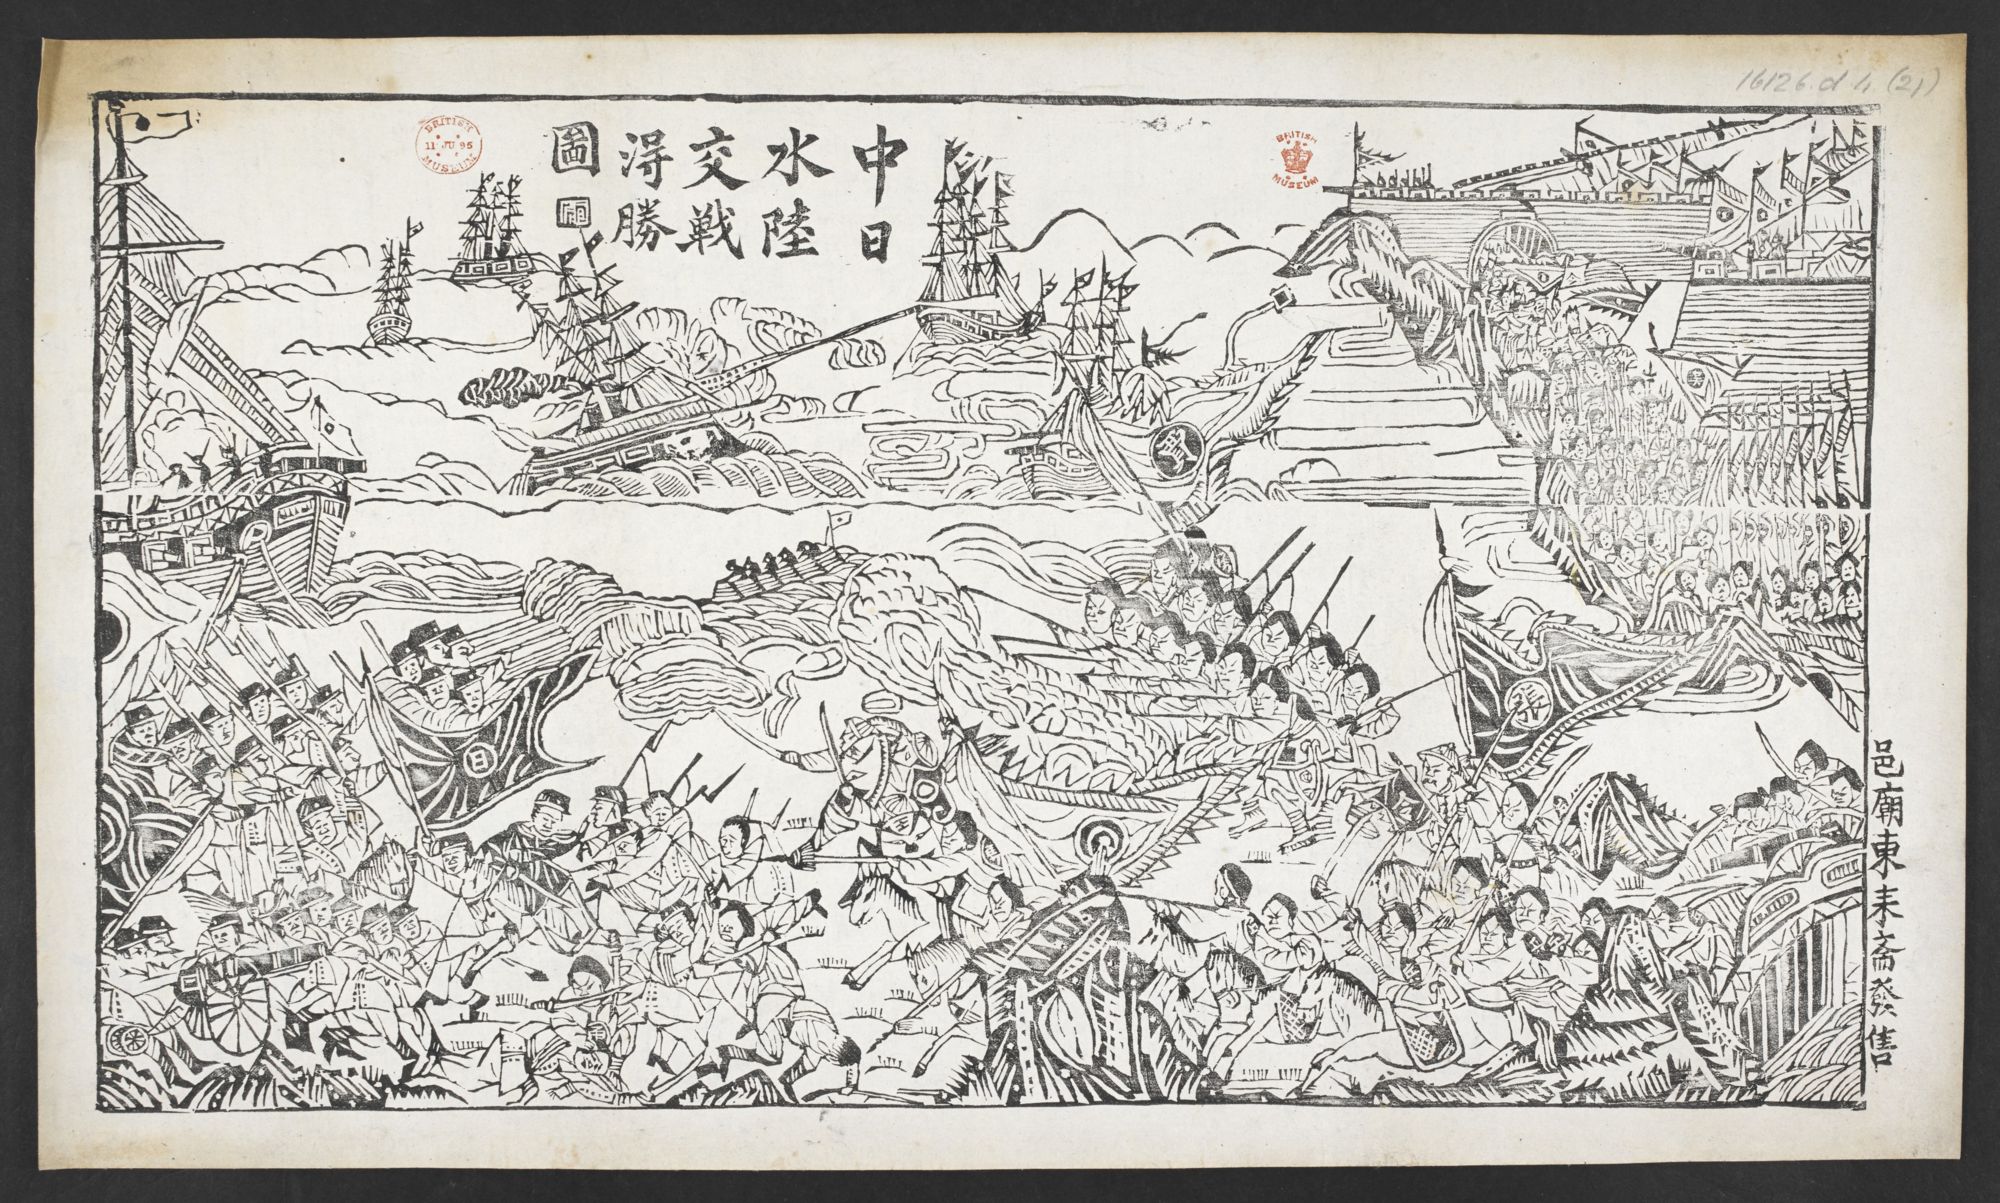 中日
水陸
交戦
淂勝
啚
邑廟東耒斋發售
日
BRITISH
11 JU 95
MUSEUM
BRITISH
MUSEUM
16126.d.4.(21)